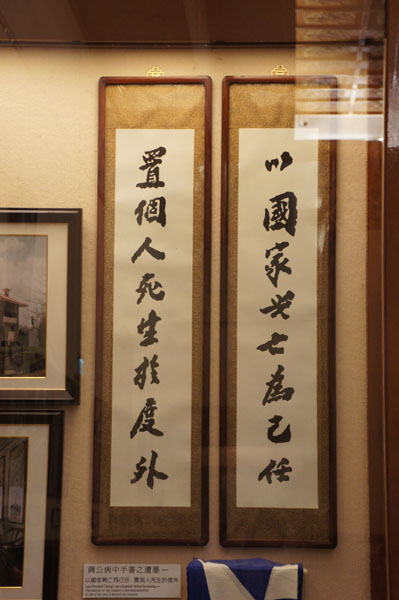 以國家興亡為己任
置個人死生於度外
蔣公病中手書之遺墨一
以國家興亡為己任 置個人死生於度外